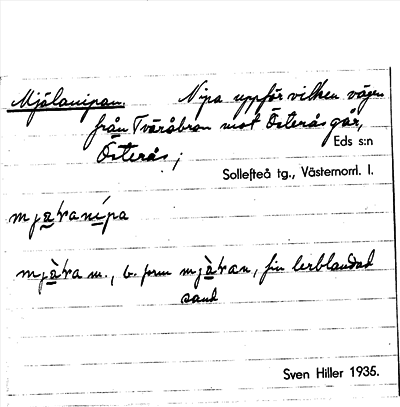 Mjälanipan. Nipa uppför vilken vägen
från Tväråbron mot Österås går,
Österås; Eds s:n
Sollefteå tg., Västernorrl. l.
mjàɽanípa
mjàɽa m., b. form mjàɽan, fin lerblandad
sand
Sven Hiller 1935.